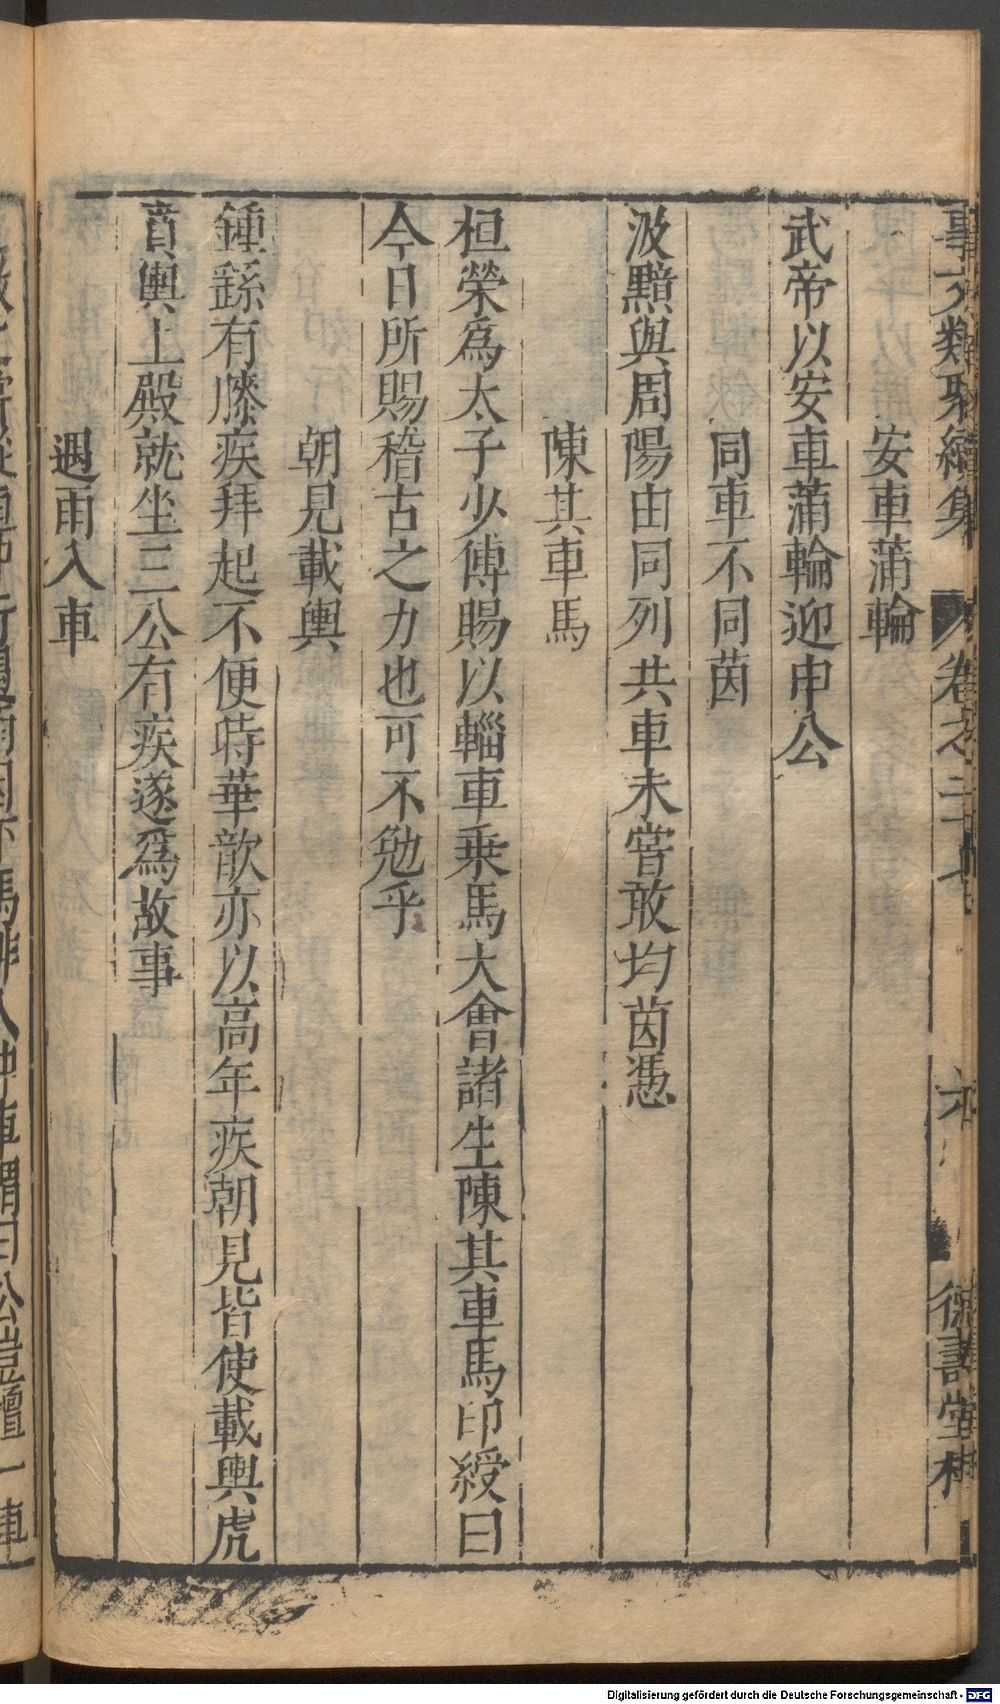 事文類聚續集 卷之二十
安車蒲輪
武帝以安車蒲輪迎申公
同車不同茵
汲黯與周陽由同列共車未甞敢均茵憑
陳其車馬
桓榮爲太子少傅賜以輜車乗馬大會諸生陳其車馬印綬曰
今日所賜稽古之力也可不勉乎
朝見載輿
鍾繇有膝疾拜起不便時華歆亦以高年疾朝見皆使載輿虎
賁輿上殿就坐三公有疾遂爲故事
遇雨入車
Digitalisierung gefördert durch die Deutsche Forschungsgemeinschaft - DFG